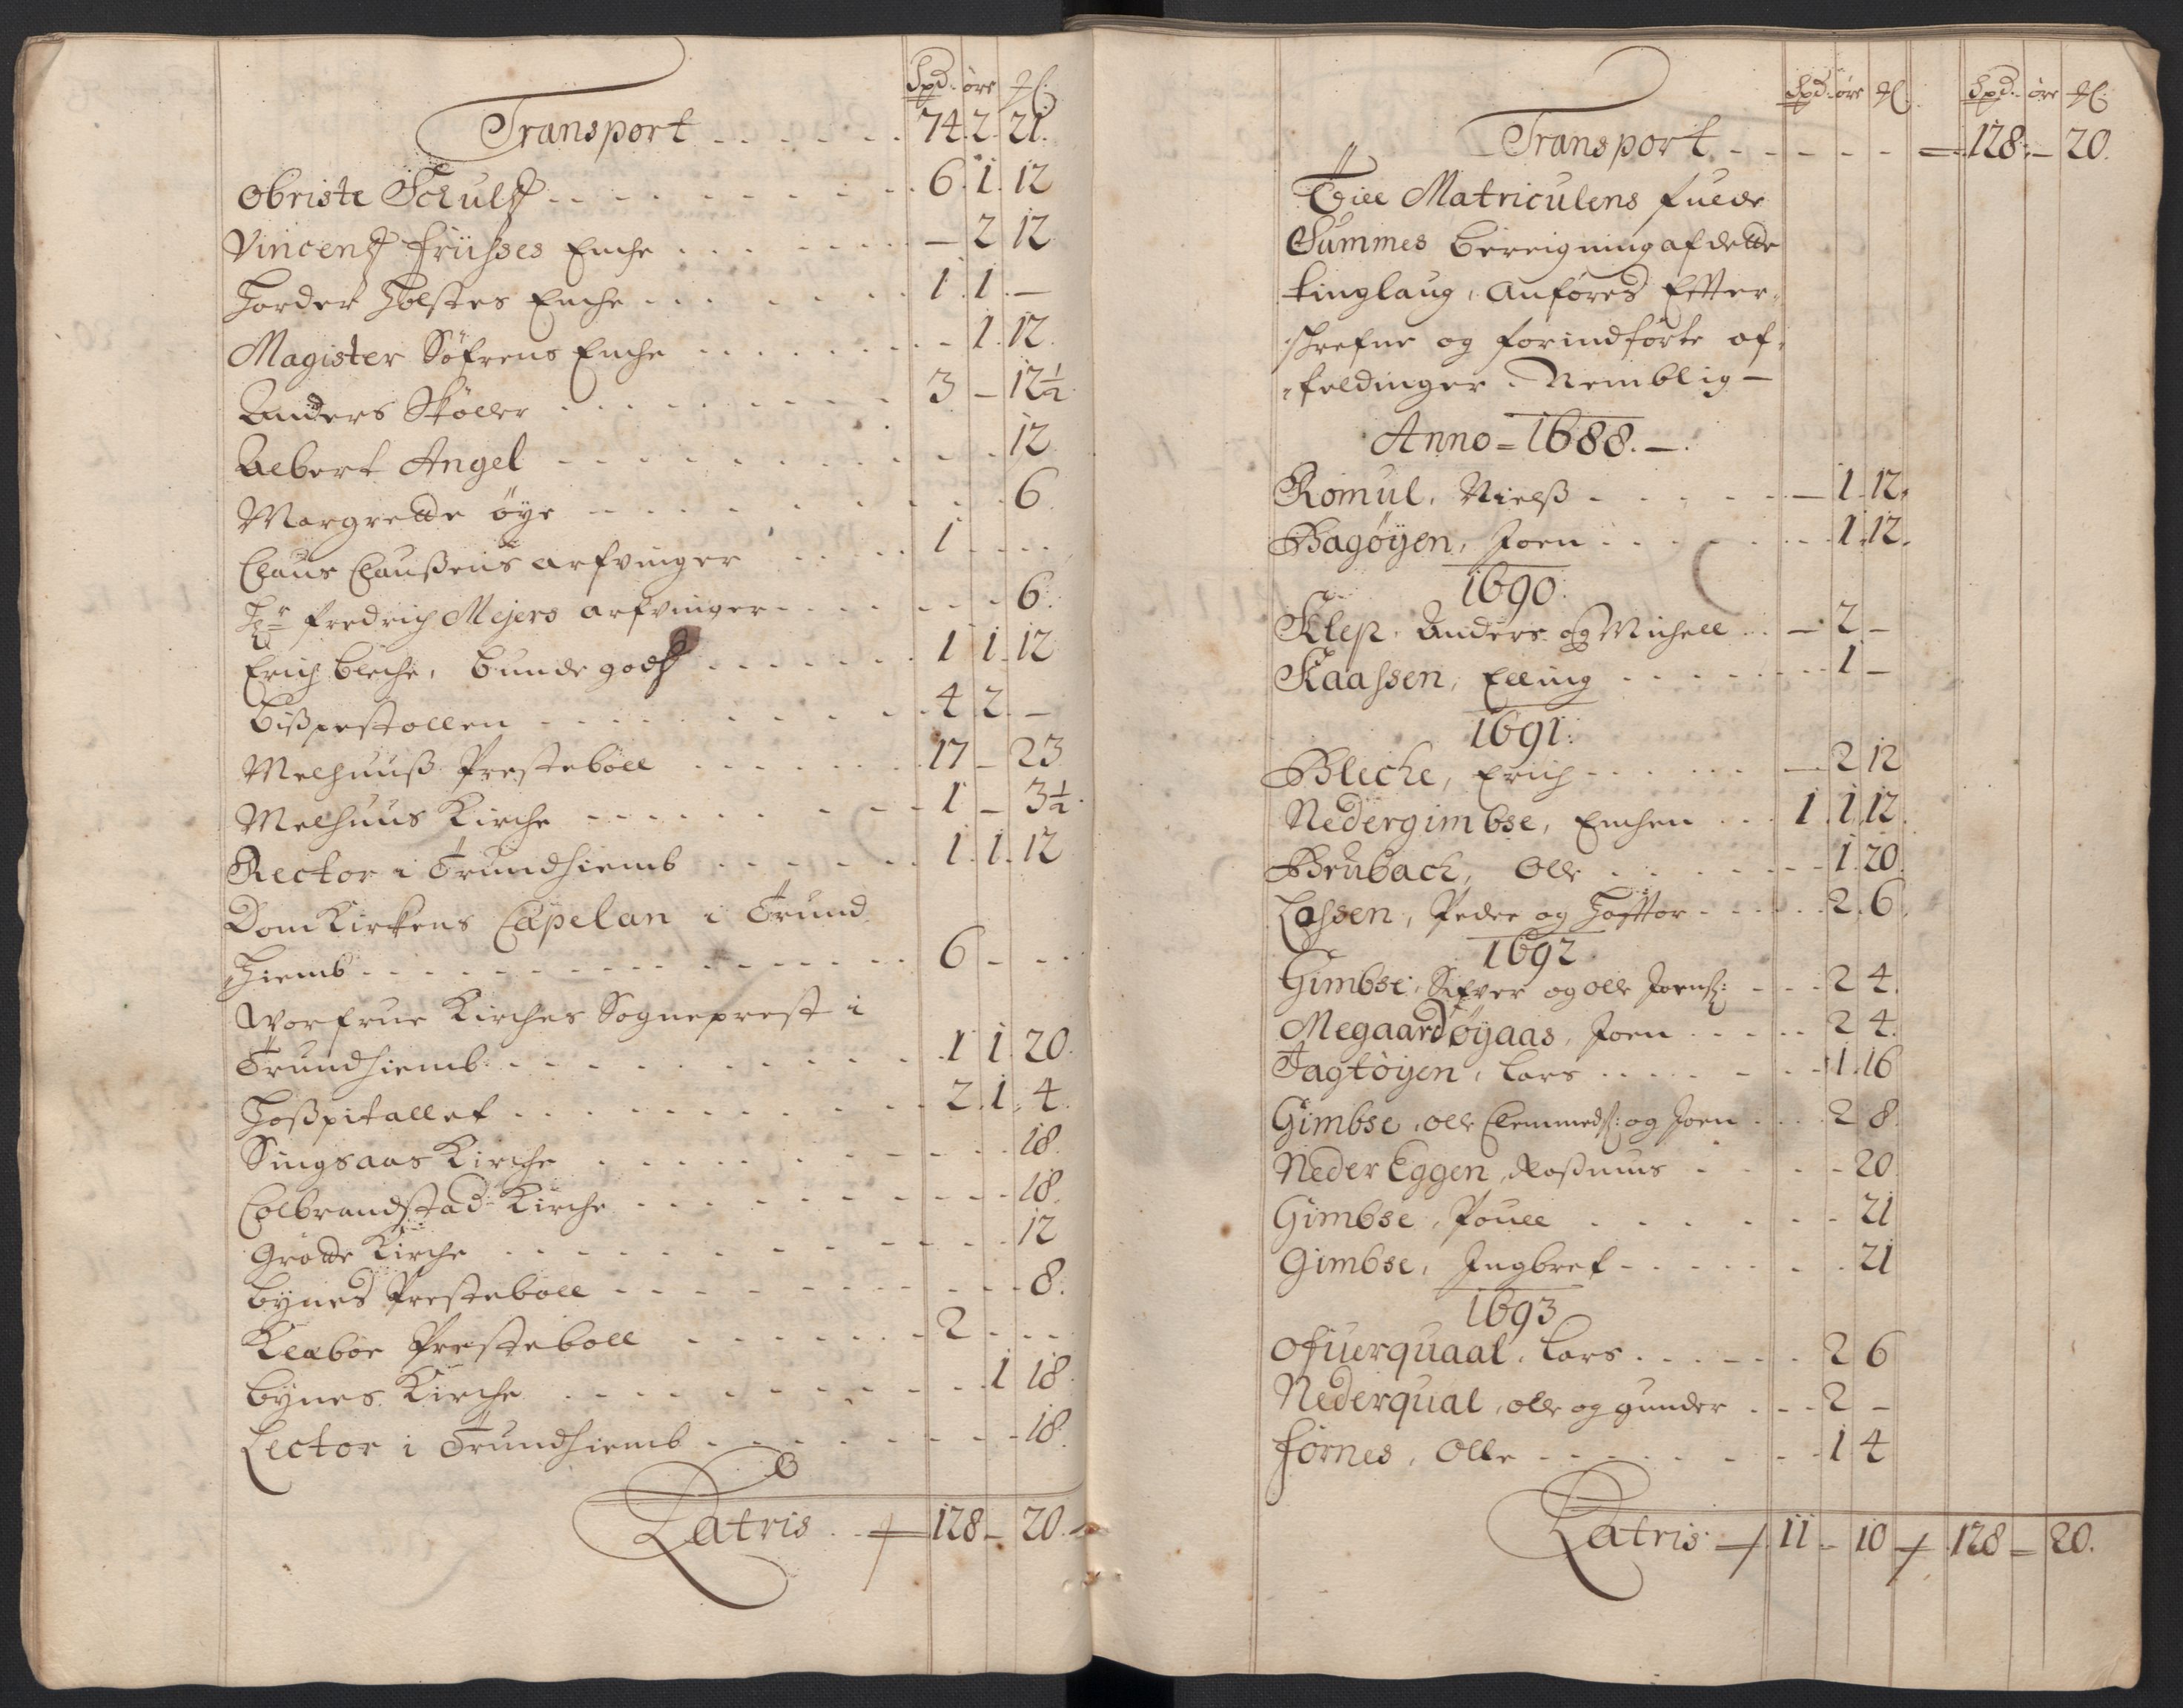 Spd. öre ₰
Transport 74. 2. 21.
Obriste Schultz 6. 1. 12
Vincentz Früsses Enche – 2 12
Tordes Holstes Enche 1. 1. –
Magister Söfrens Enche – 1. 12.
Anders Sköller 3 – 12½
Albert Angel 12.
Margrette öye 6.
Claus Claußens arfvinger 1
Hr Fredrich Mejers arfvinger 6.
Erich Bleche, bunde godtz 1 1. 12
Bißpestollen 4. 2. –
Melhuuß Presteböll 17 – 23
Melhuus Kirche 1 – 3½
Rector i Trundhiemb 1. 1. 12
Dom Kirkens Capelan i Trund
hiemb 6 –
Worfrue Kirches Sogneprest i
Trundhiemb 1 1. 20.
Hoßpitallet 2. 1. 4.
Singsaas Kirche 18.
Colbrandstad Kirche 18.
Grötte Kirche 12
Bynes Presteboll 8.
Klæboe Presteboll 2
Bynes Kirche 1 18.
Lector i Trundhiemb 18.
Latris 128 – 20.
Spd. öre ₰ Spd. öre ₰
Transport 128 – 20.
Till Matriculens fulde
Summes bereigning af dette
tinglaug, anföres Efter-
skrefne og forindförte af-
feldinger. Nemblig –
Anno = 1688. –
Romul, Nielß – 1. 12.
Bagöyen, Joen 1. 12.
1690.
Klep, Anders og Michell – 2 –
Kaassen, Elling 1 –
1691.
Bleche, Erich – 2 12
Nedergimbse, Enchen 1. 1. 12.
Brubach, Olle 1. 20.
Lassen, Peder og 2. 6.
1692.
Gimbse, Sifver og Olle Joens: 2 4.
Megaard öyaas, Joen 2 4.
Jagtöyen, Lars 1. 16
Gimbse, Olle Clemmeds: og Joen 2 8.
Neder Eggen, Raßmus 20.
Gimbse, Pouell 21
Gimbse, Ingbret 21
1693
Ofuerquaal, Lars 2 6
Nederqual, Olle og Gunder 2 –
Fornes, Olle 1 4
Latris 11 – 10 128 – 20.